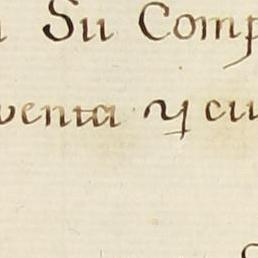 Su Comp
venta y cu